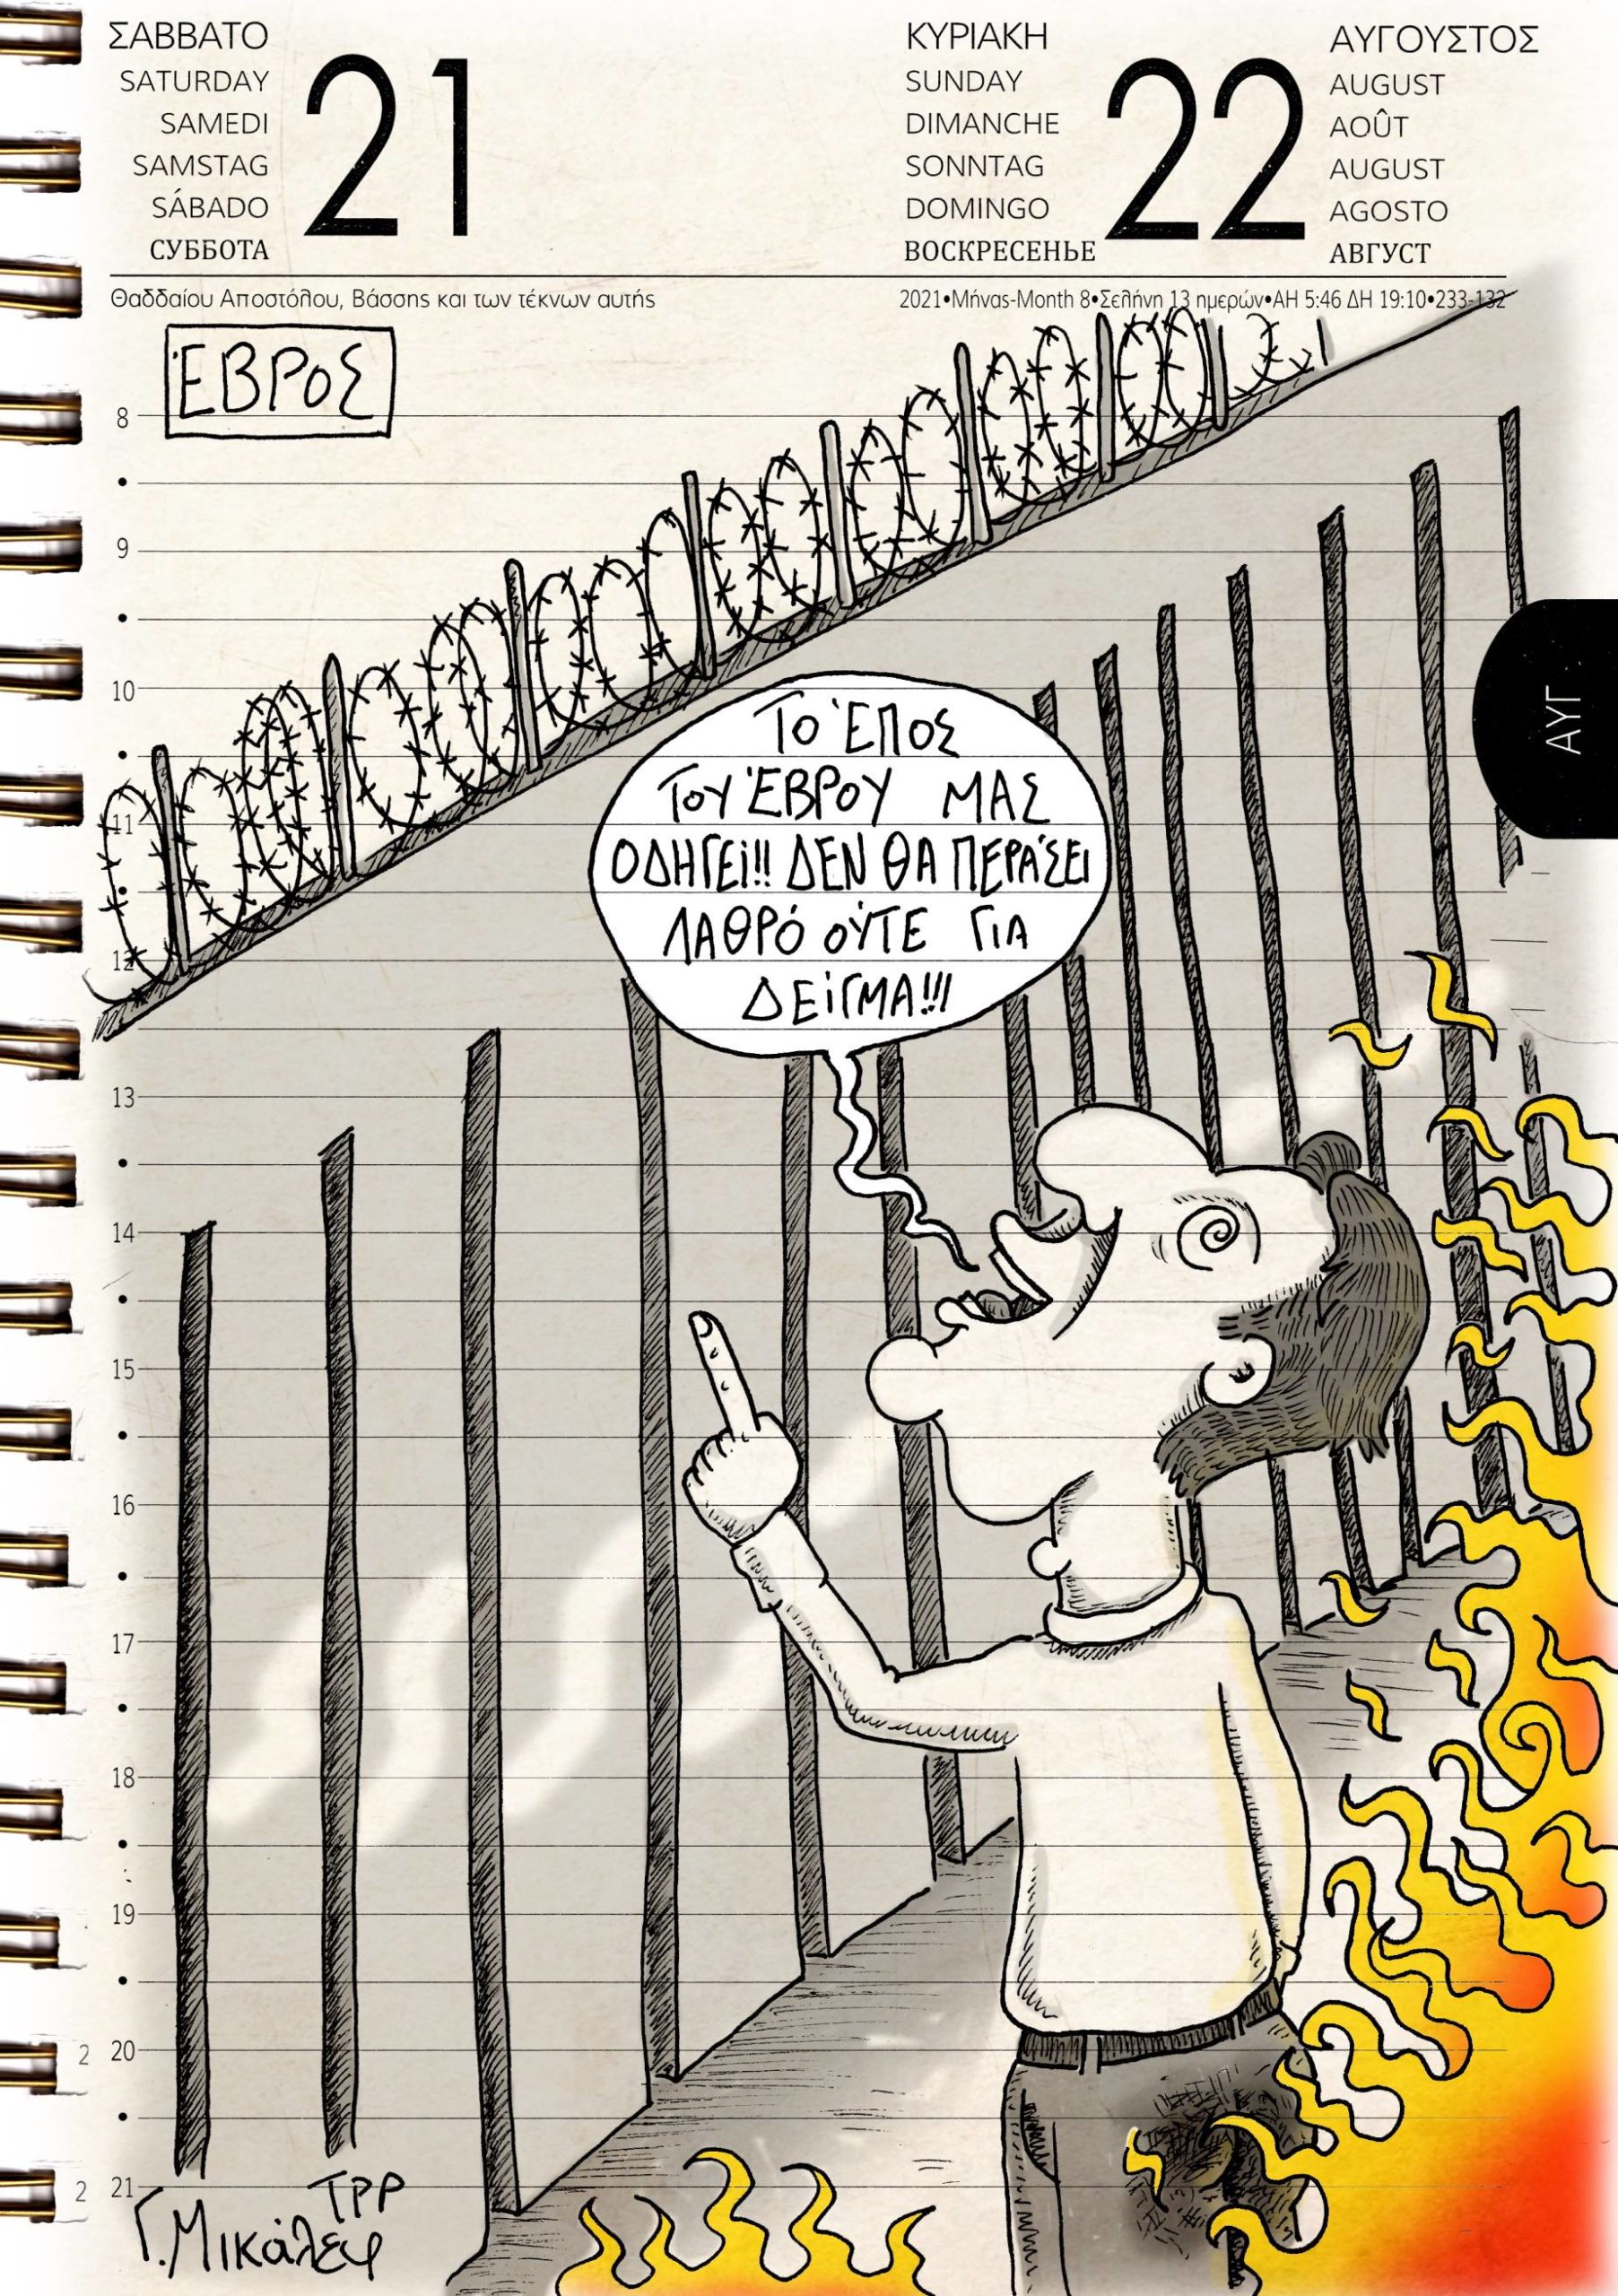 ΣΑΒΒΑΤΟ
SATURDAY
SAMEDI
SAMSTAG
SÁBADO
СУББОТА
21
ΚΥΡΙΑΚΗ
SUNDAY
DIMANCHE
SONNTAG
DOMINGO
ВОСКРЕСЕНЬЕ
22
ΑΥΓΟΥΣΤΟΣ
AUGUST
AOÛT
AUGUST
AGOSTO
АВГУСТ
Θαδδαίου Αποστόλου, Βάσσης και των τέκνων αυτής
2021•Μήνας-Month 8•Σελήνη 13 ημερών•ΑΗ 5:46 ΔΗ 19:10•233-132
ΈΒΡΟΣ
8
9
10
ΑΥΓ
ΤΟ ΈΠΟΣ
ΤΟΥ ΈΒΡΟΥ ΜΑΣ
ΟΔΗΓΕί!! ΔΕΝ ΘΑ ΠΕΡΆΣΕΙ
ΛΑΘΡΌ ΟΎΤΕ ΓΙΑ
ΔΕίΓΜΑ!!!
11
12
13
14
15
16
17
18
19
2 20
2 21
ΤΡΡ
Γ. Μικάλεφ